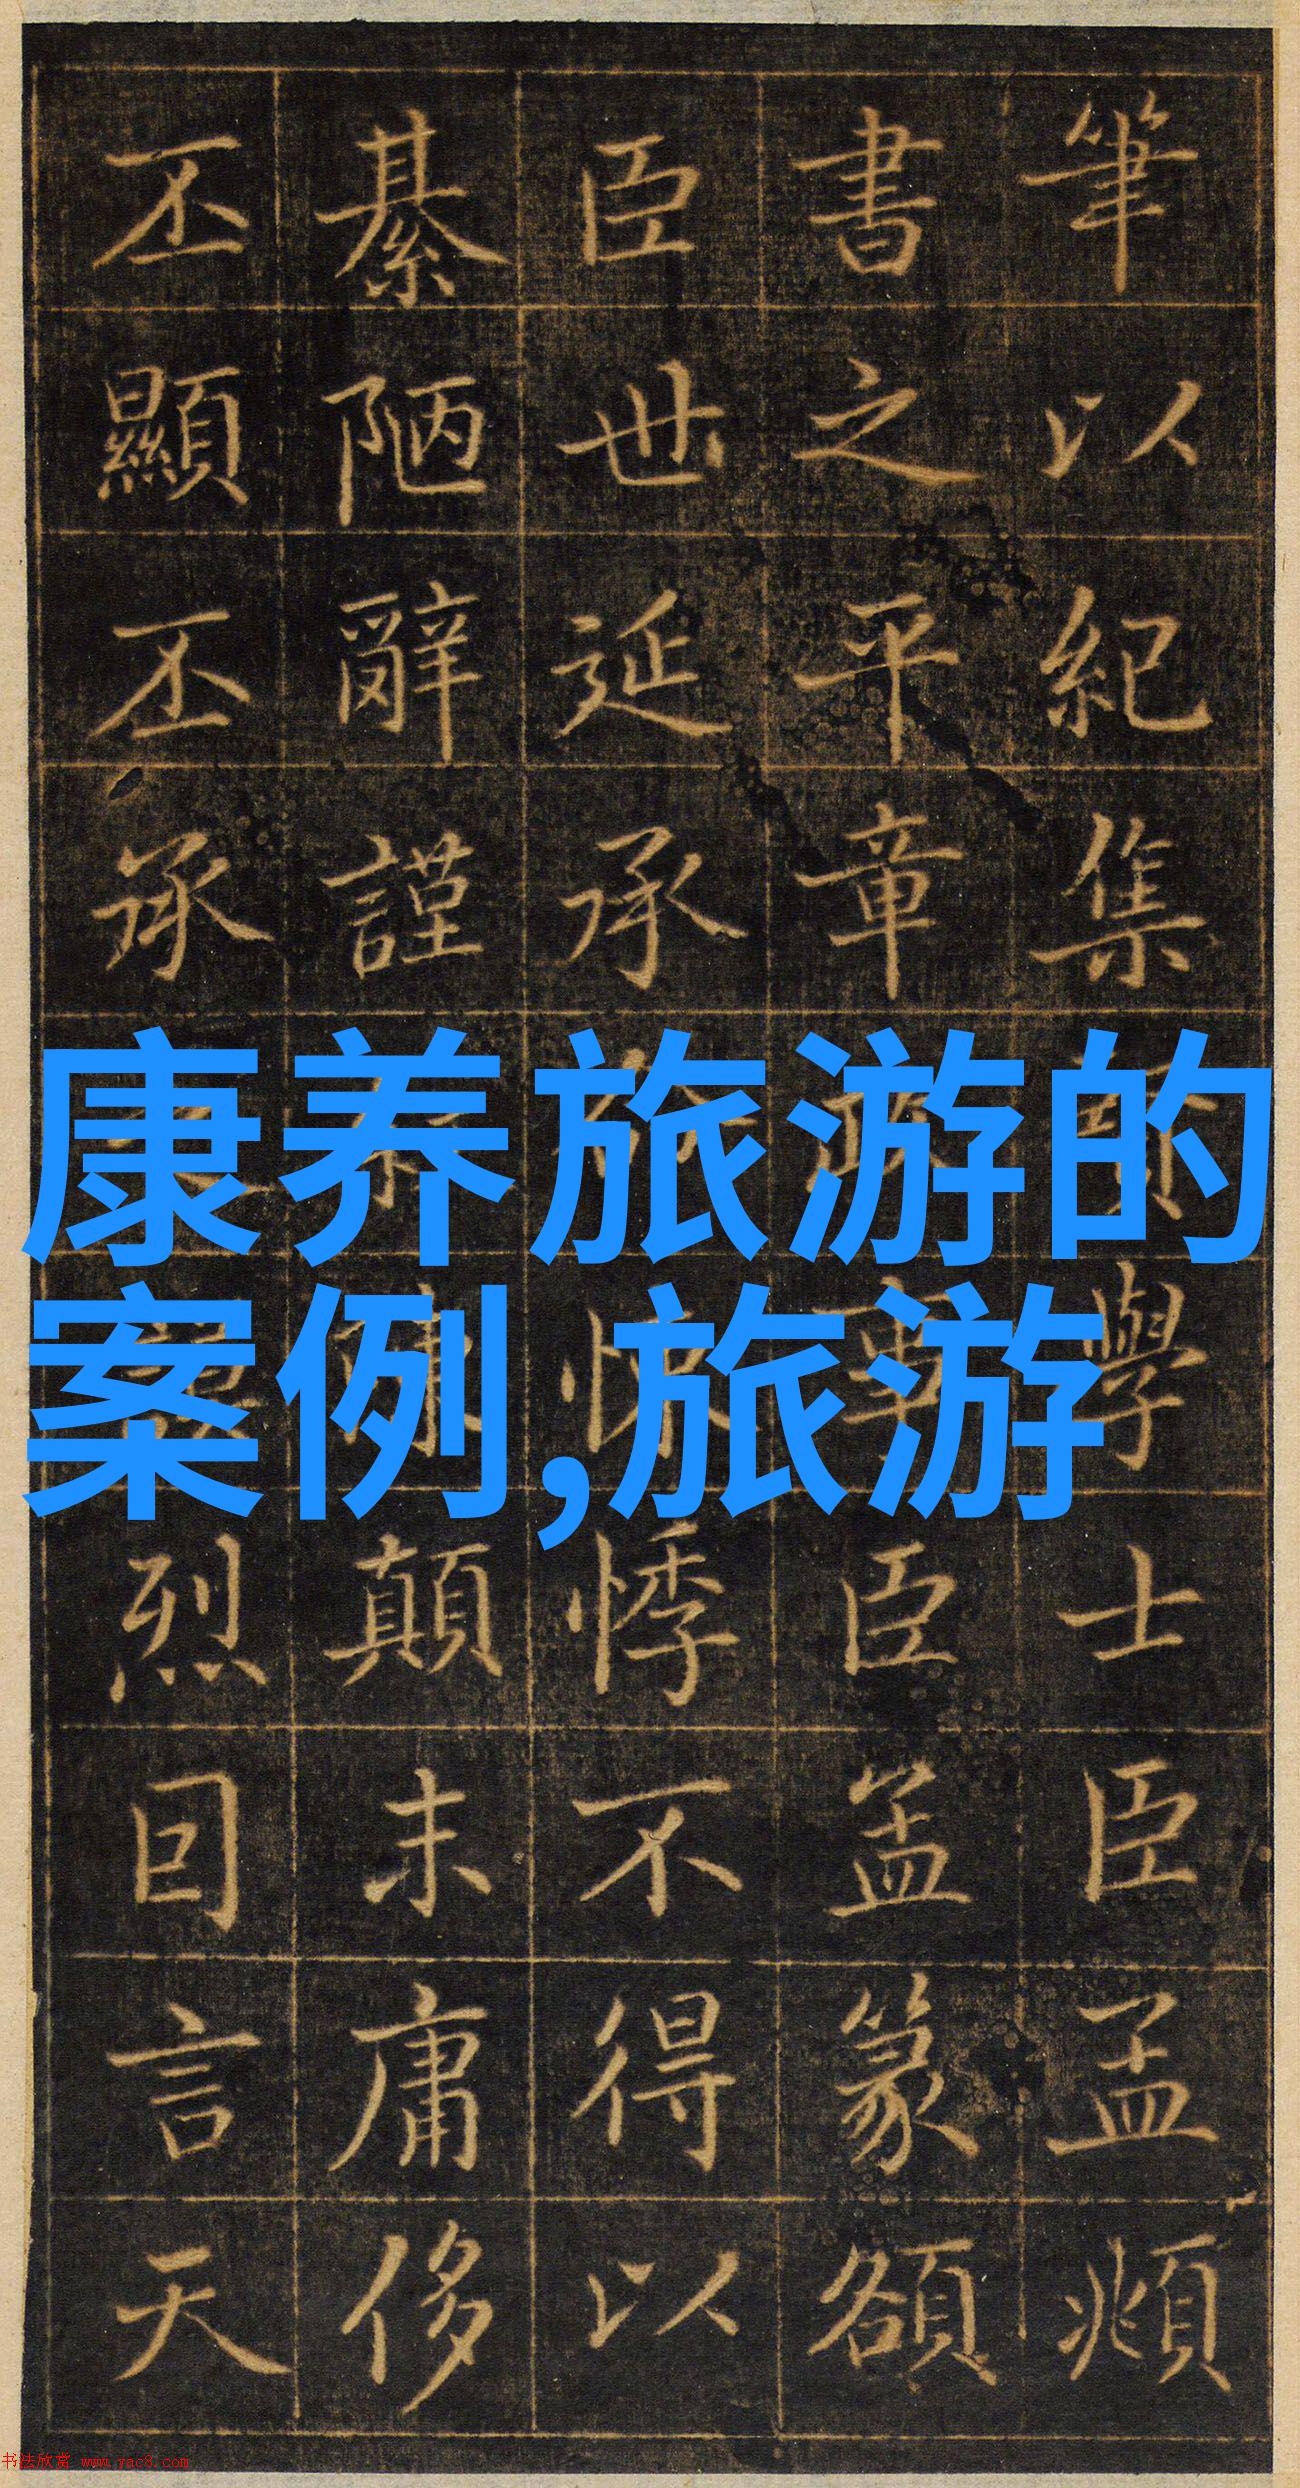 筆以紀集學士臣孟頫
書之平章政事臣篆額
臣世延承怵悸不得以
綦陋辭謹顛末庸侈
丕顯丕承烈囙言天
康养旅游的
案例,旅游
书法欣赏 www.yac8.com